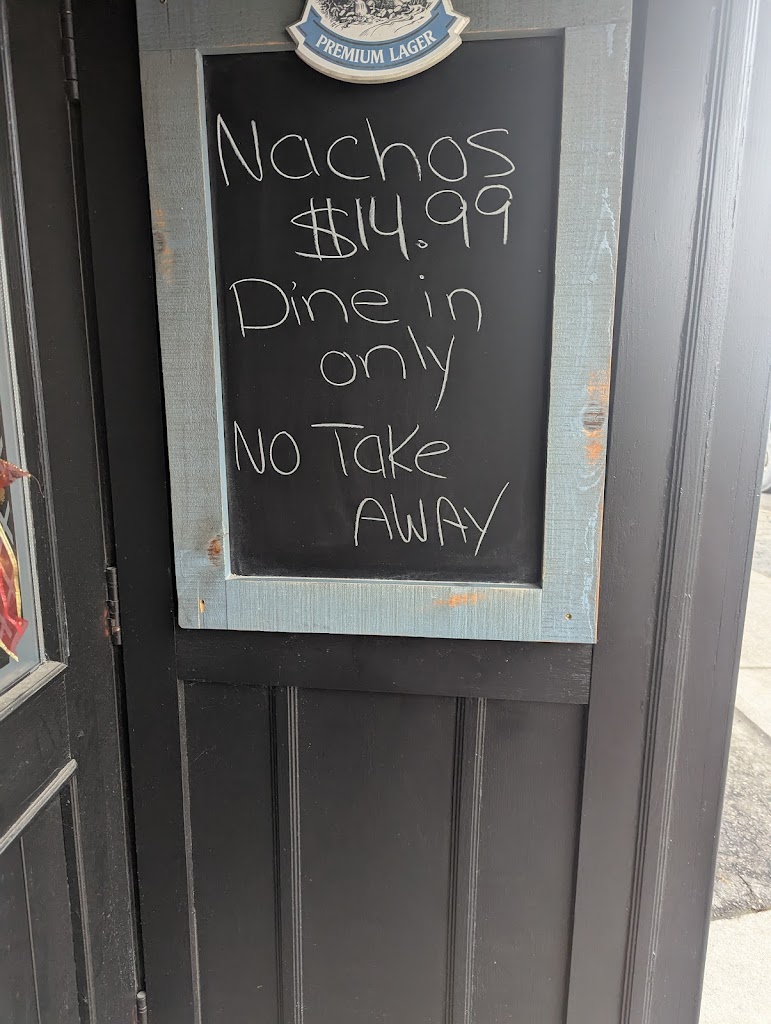 PREMIUM LAGER
Nachos
$14.99
Dine in
only
No Take
AWAY